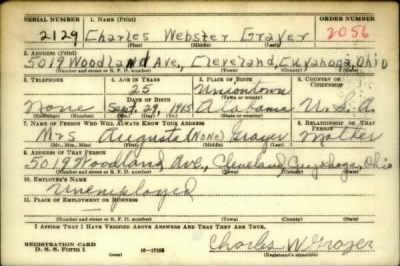 SERIAL NUMBER 1. NAME (Print) ORDER NUMBER
2129 Charles Webster Grayer 2056
(First) (Middle) (Last)
2. ADDRESS (Print)
5019 Woodland Ave, Cleveland, Cuyahoga, Ohio
(Number and street or R. F. D. number) (Town) (County) (State)
3. TELEPHONE 4. AGE IN YEARS 5. PLACE OF BIRTH 6. COUNTRY OF CITIZENSHIP
25 Uniontown
DATE OF BIRTH (Town or county)
None Sept. 29, 1915 Alabama U.S.A.
(Mo.) (Day) (Yr.) (State or country)
7. NAME OF PERSON WHO WILL ALWAYS KNOW YOUR ADDRESS 8. RELATIONSHIP OF THAT PERSON
Mrs Augusta (NONE) Grayer Mother
(Mr., Mrs., Miss) (First) (Middle) (Last)
9. ADDRESS OF THAT PERSON
5019 Woodland Ave, Cleveland, Cuyahoga, Ohio
(Number and street or R. F. D. number) (Town) (County) (State)
10. EMPLOYER'S NAME
Unemployed
11. PLACE OF EMPLOYMENT OR BUSINESS
(Number and street or R. F. D. number) (Town) (County) (State)
I AFFIRM THAT I HAVE VERIFIED ABOVE ANSWERS AND THAT THEY ARE TRUE.
REGISTRATION CARD
D. S. S. Form 1 16-17105 Charles W Grayer
(Registrant's signature)